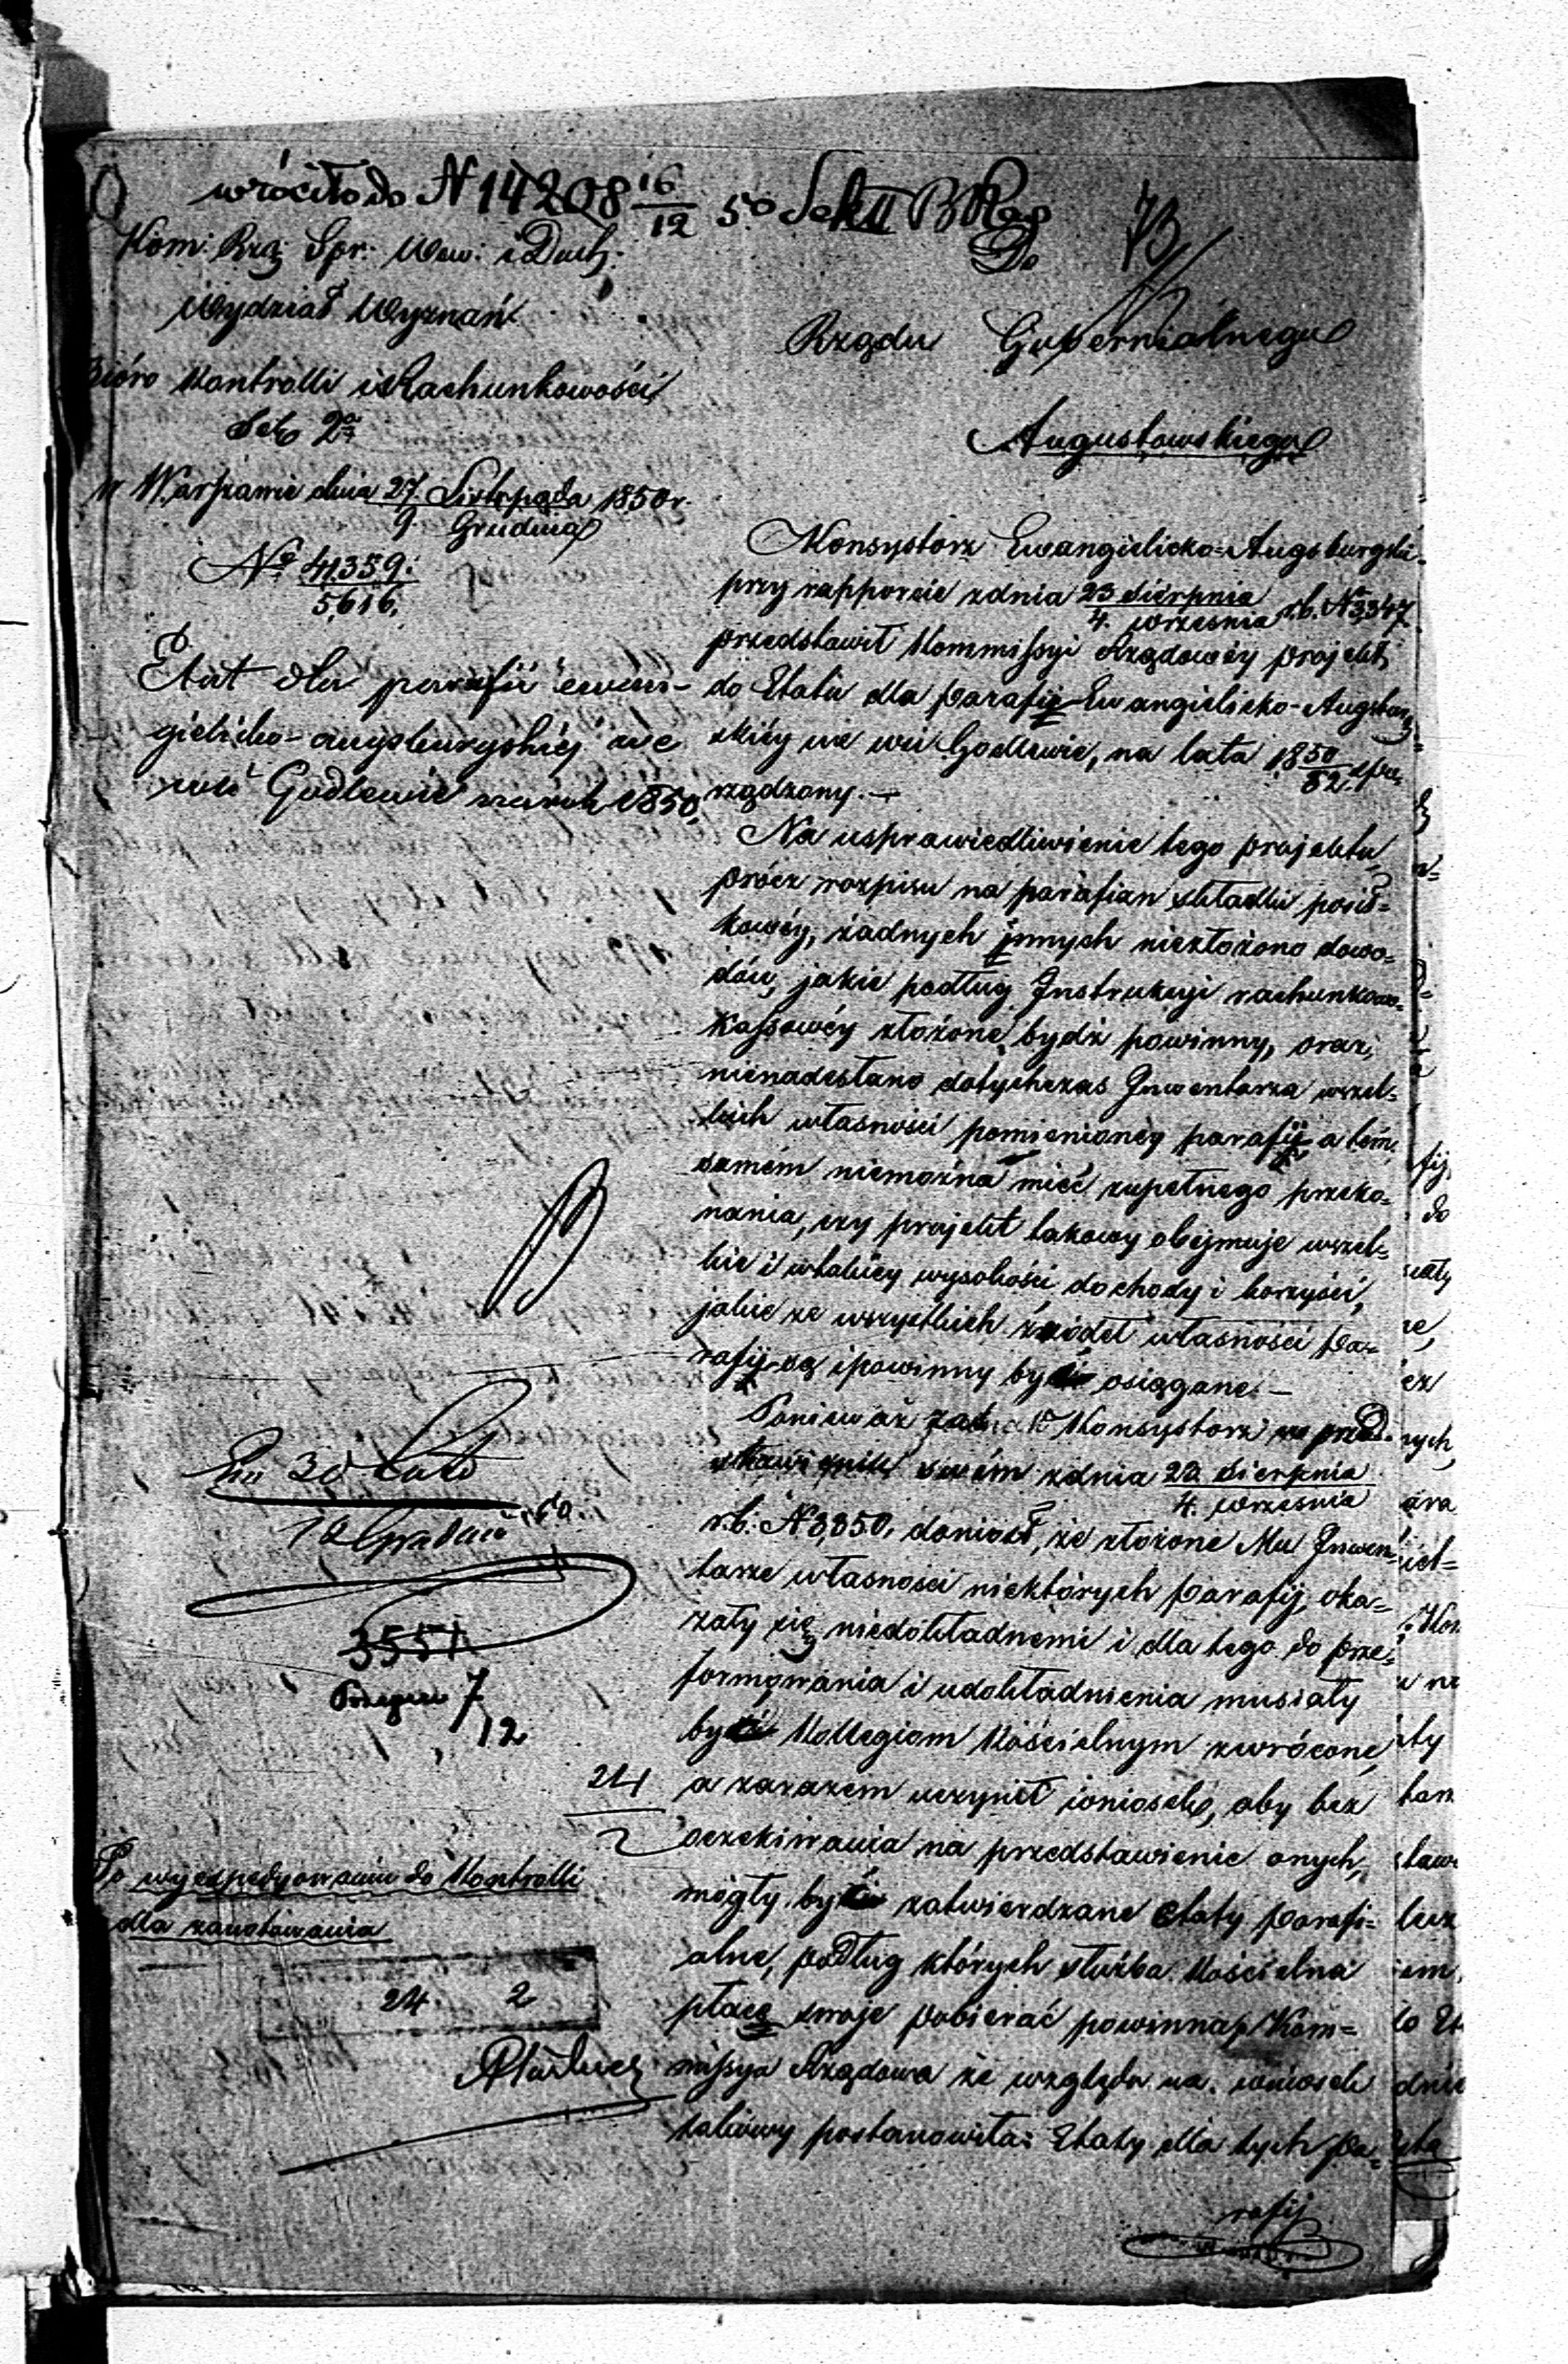 wróciło do N 14208 16/12 50 Sek II B Rzą
73
Kom: Rzą: Spr: Wew: i Duch:
Wydział Wyznań
Bióro Kontrolli i Rachunkowości
Sek 2a
w Warszawie dnia 27. Listopada / 9. Grudnia 1850 r.
No 41359. / 5616.
Etat dla parafii ewan-
gielicko-augsburgskiéj we
wsi Godlewie na rok 1850.
Do
Rządu Gubernialnego
Augustowskiego
Konsystorz Ewangielicko-Augsburgski
przy rapporcie z dnia 23 Sierpnia / 4. Września r.b. No 3347
przedstawił Kommissyi Rządowéy projekt
do Etatu dla parafij Ewangielicko-Augsburg
skiéy we wsi Godlewie, na lata 1850/52. spo-
rządzony. —
Na usprawiedliwienie tego projektu,
prócz rozpisu na parafian składki posił-
kowéy, żadnych innych niezłożono dowo-
dów, jakie podług Instrukcyi rachunkowo-
kassowéy złożone bydź powinny, oraz
nienadesłano dotychczas Inwentarza wszel-
kich własności pomienionéy parafij a tém
samém niemożna mieć zupełnego przeko-
nania, czy projekt takowy obejmuje wszel-
kie i w takiéy wysokości dochody i korzyści,
jakie ze wszystkich źródeł własności pa-
rafij są i powinny być osiągane. —
Ponieważ Konsystorz w przed-
stawieniu swém z dnia 23. Sierpnia / 4. Września
r.b. N 3350, doniosł, że złożone Mu Inwen-
tarze własności niektórych parafij, oka-
zały się niedokładnemi i dla tego do prze-
formowania i udokładnienia musiały
być Kollegiom Kościelnym zwrócone,
a zarazem uczynił wniosek, aby bez
oczekiwania na przedstawienie onych,
mogły być zatwierdzane Etaty parafi-
alne, podług których służba Kościelna
płace swoje pobierać powinna, Kom-
missya Rządowa ze względu na wniosek
takowy postanowiła: Etaty dla tych pa-
rafij
3551
7/12
24/2
Po wyexpedyowaniu do Kontrolli
dla zanotowania
24 2